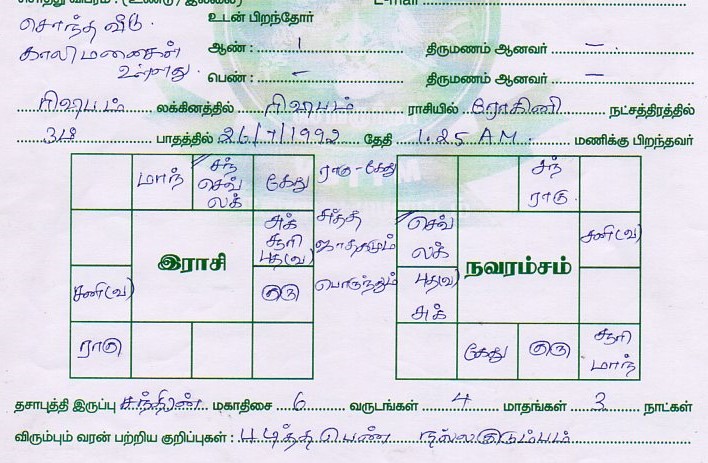 சொந்த வீடு
உடன் பிறந்தோர்
காலி மனைகள் உள்ளது.
ஆண் : 1 திருமணம் ஆனவர் –
பெண் : – திருமணம் ஆனவர் –
ரிஷபம் லக்கினத்தில் ரிஷபம் ராசியில் ரோகிணி நட்சத்திரத்தில்
3ம் பாதத்தில் 26/7/1992 தேதி 1.25 AM. மணிக்கு பிறந்தவர்
மாந் சந் செவ் லக் கேது
சுக் சூரி புத(வ)
சனி(வ) குரு
ராகு
இராசி
ராகு-கேது
சுத்த
ஜாதகமும்
பொருந்தும்
சந் ராகு
செவ் லக் சனி(வ)
புத(வ) சுக்
கேது குரு சூரி மாந்
நவரம்சம்
தசாபுத்தி இருப்பு சந்திரன் மகாதிசை 6 வருடங்கள் 4 மாதங்கள் 3 நாட்கள்
விரும்பும் வரன் பற்றிய குறிப்புகள் : படித்த பெண் நல்லகுடும்பம்